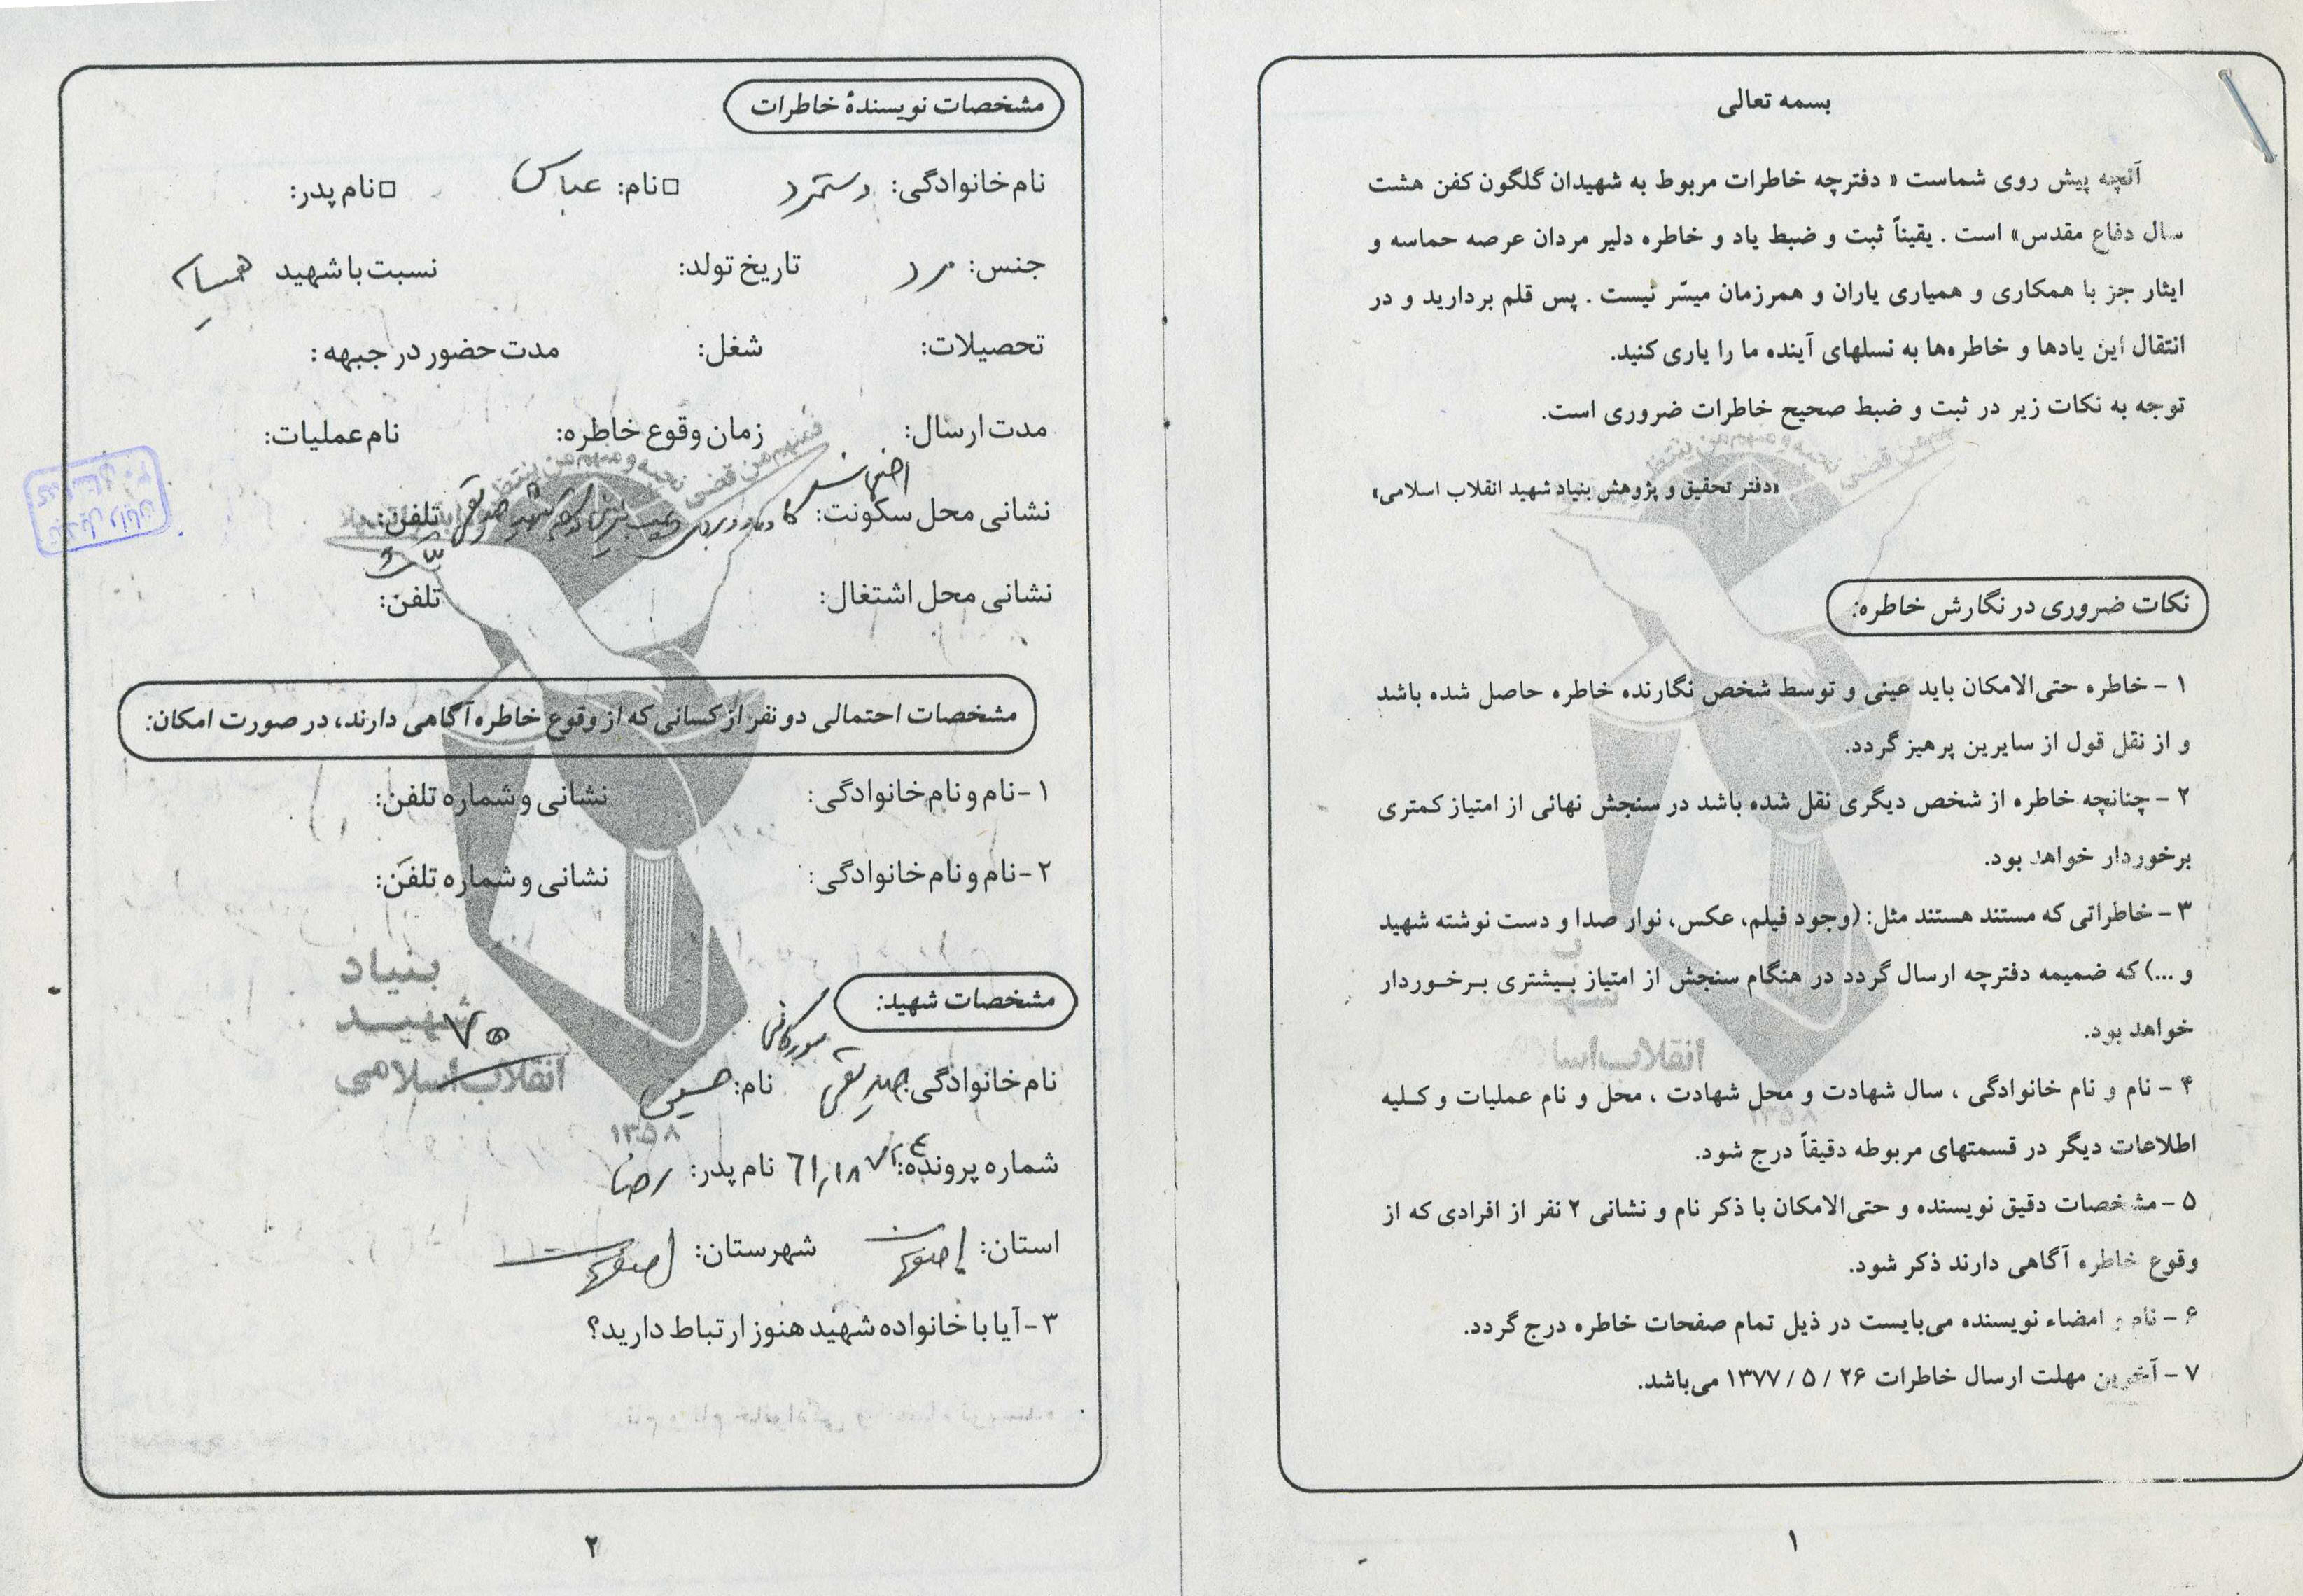 بسمه تعالی
آنچه پیش روی شماست « دفترچه خاطرات مربوط به شهیدان گلگون کفن هشت
سال دفاع مقدس» است . یقیناً ثبت و ضبط یاد و خاطره دلیر مردان عرصه حماسه و
ایثار جز با همکاری و همیاری یاران و همرزمان میسّر نیست . پس قلم بردارید و در
انتقال این یادها و خاطره‌ها به نسلهای آینده ما را یاری کنید.
توجه به نکات زیر در ثبت و ضبط صحیح خاطرات ضروری است.
«دفتر تحقیق و پژوهش بنیاد شهید انقلاب اسلامی»
نکات ضروری در نگارش خاطره:
۱ - خاطره حتی‌الامکان باید عینی و توسط شخص نگارنده خاطره حاصل شده باشد
و از نقل قول از سایرین پرهیز گردد.
۲ - چنانچه خاطره از شخص دیگری نقل شده باشد در سنجش نهائی از امتیاز کمتری
برخوردار خواهد بود.
۳ - خاطراتی که مستند هستند مثل: (وجود فیلم، عکس، نوار صدا و دست نوشته شهید
و ...) که ضمیمه دفترچه ارسال گردد در هنگام سنجش از امتیاز بیشتری برخوردار
خواهد بود.
۴ - نام و نام خانوادگی ، سال شهادت و محل شهادت ، محل و نام عملیات و کلیه
اطلاعات دیگر در قسمتهای مربوطه دقیقاً درج شود.
۵ - مشخصات دقیق نویسنده و حتی‌الامکان با ذکر نام و نشانی ۲ نفر از افرادی که از
وقوع خاطره آگاهی دارند ذکر شود.
۶ - نام و امضاء نویسنده می‌بایست در ذیل تمام صفحات خاطره درج گردد.
۷ - آخرین مهلت ارسال خاطرات ۲۶ / ۵ / ۱۳۷۷ می‌باشد.
۱
مشخصات نویسندهٔ خاطرات
نام خانوادگی: دستمرد □ نام: عباس □ نام پدر:
جنس: مرد تاریخ تولد: نسبت با شهید همسایه
تحصیلات: شغل: مدت حضور در جبهه :
مدت ارسال: زمان وقوع خاطره: نام عملیات:
نشانی محل سکونت: اصفهان شهید صدیقی تلفن:
نشانی محل اشتغال: تلفن:
مشخصات احتمالی دو نفر از کسانی که از وقوع خاطره آگاهی دارند، در صورت امکان:
۱ -نام و نام خانوادگی: نشانی و شماره تلفن:
۲ -نام و نام خانوادگی: نشانی و شماره تلفن:
بنیاد
شهید
انقلاب اسلامی
۱۳۵۸
مشخصات شهید:
نام خانوادگی: صدیقی نام: حسین
شماره پرونده: نام پدر: رضا
استان: اصفهان شهرستان: اصفهان
۳ -آیا با خانواده شهید هنوز ارتباط دارید؟
۲